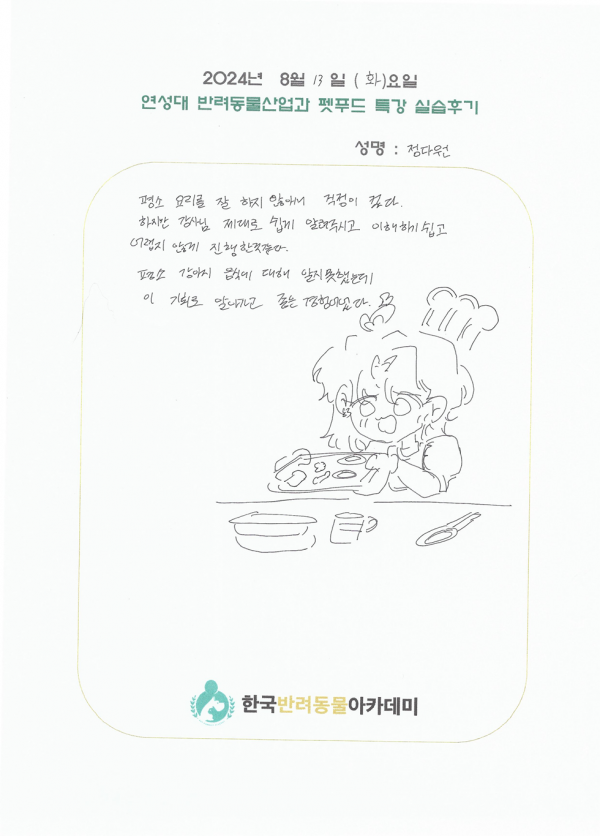 2024년 8월 13일 (화)요일
연성대 반려동물산업과 펫푸드 특강 실습후기
성명 : 정다원
평소 요리를 잘 하지 않아서 걱정이 컸다.
하지만 강사님 제대로 쉽게 알려주시고 이해하기 쉽고
어렵지 않게 진행한것같다.
평소 강아지 음식에 대해 알지못했는데
이 기회로 알아가고 좋은 경험이었다.
한국반려동물아카데미